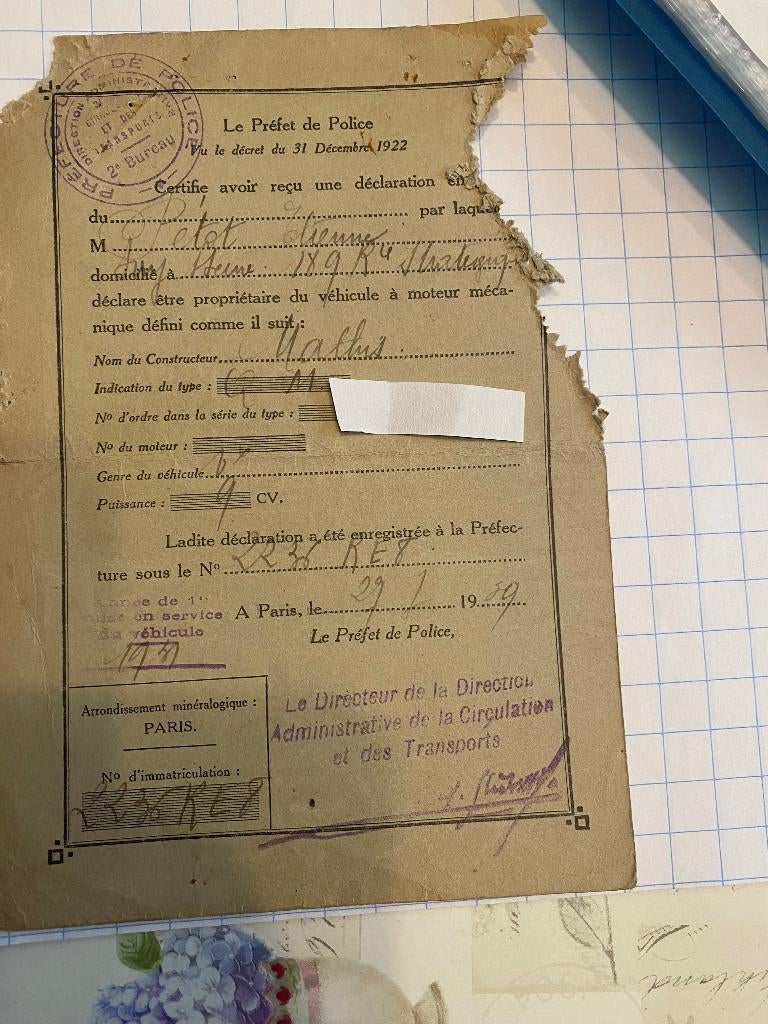 PRÉFECTURE DE POLICE
DIRECTION ADMINISTRATIVE
ET DES
TRANSPORTS
2e Bureau
Le Préfet de Police
Vu le décret du 31 Décembre 1922
Certifie avoir reçu une déclaration en
du par laque
M Petot Etienne
domicilié à 189 Rte Stratégique
déclare être propriétaire du véhicule à moteur méca-
nique défini comme il suit :
Nom du Constructeur Mathis
Indication du type : M
No d'ordre dans la série du type :
No du moteur :
Genre du véhicule
Puissance : 9 CV.
Ladite déclaration a été enregistrée à la Préfec-
ture sous le No 2236 RE8
Année de 1re
mise en service
du véhicule
1931
A Paris, le 29 1 1939
Le Préfet de Police,
Le Directeur de la Direction
Administrative de la Circulation
et des Transports
Arrondissement minéralogique :
PARIS.
No d'immatriculation :
2236 RE8